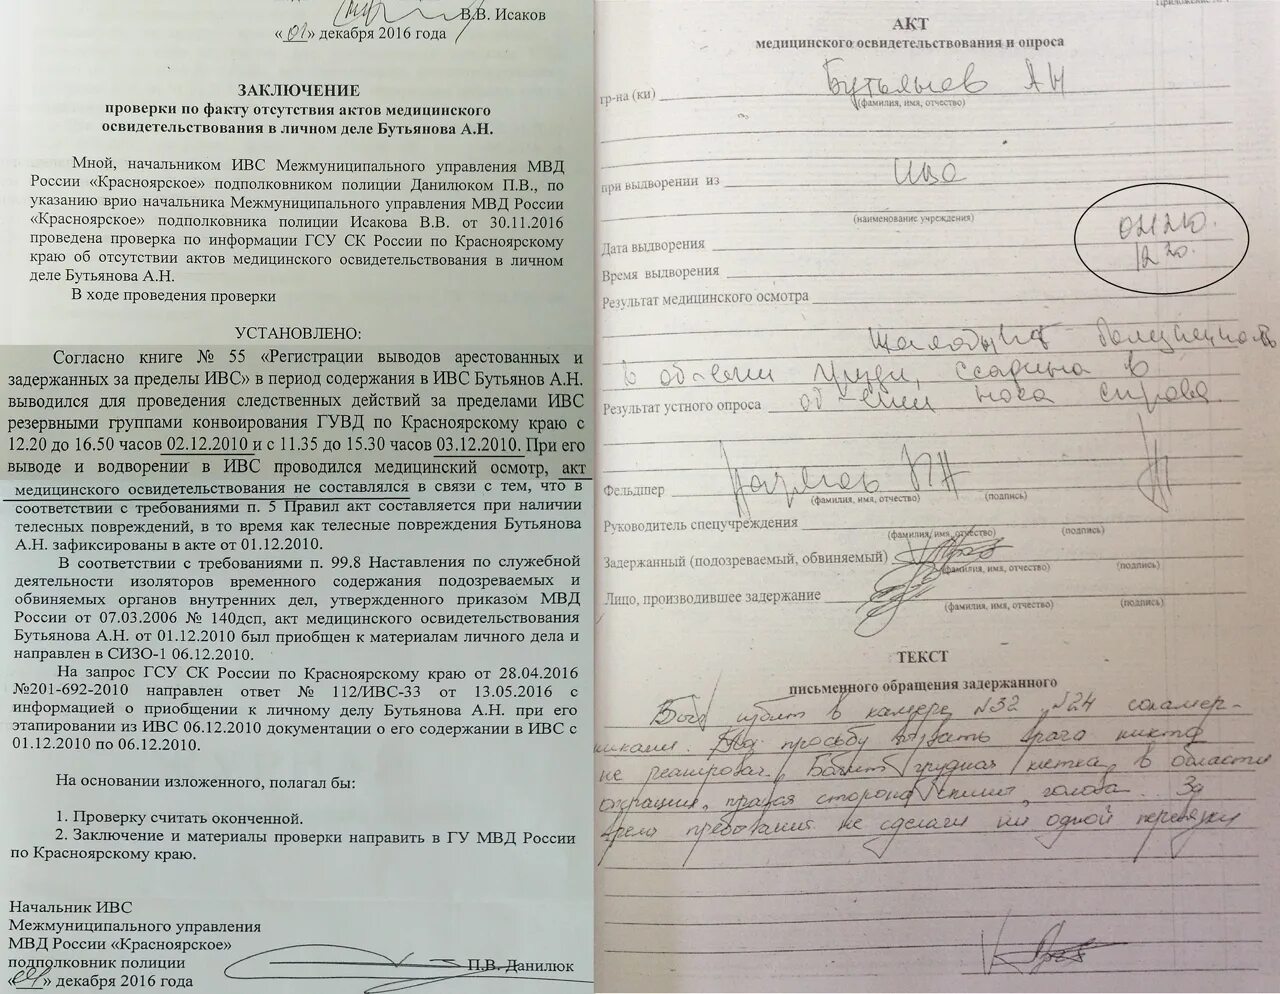 В.В. Исаков
«01» декабря 2016 года
ЗАКЛЮЧЕНИЕ
проверки по факту отсутствия актов медицинского
освидетельствования в личном деле Бутьянова А.Н.
Мной, начальником ИВС Межмуниципального управления МВД
России «Красноярское» подполковником полиции Данилюком П.В., по
указанию врио начальника Межмуниципального управления МВД России
«Красноярское» подполковника полиции Исакова В.В. от 30.11.2016
проведена проверка по информации ГСУ СК России по Красноярскому
краю об отсутствии актов медицинского освидетельствования в личном
деле Бутьянова А.Н.
В ходе проведения проверки
УСТАНОВЛЕНО:
Согласно книге № 55 «Регистрации выводов арестованных и
задержанных за пределы ИВС» в период содержания в ИВС Бутьянов А.Н.
выводился для проведения следственных действий за пределами ИВС
резервными группами конвоирования ГУВД по Красноярскому краю с
12.20 до 16.50 часов 02.12.2010 и с 11.35 до 15.30 часов 03.12.2010. При его
выводе и водворении в ИВС проводился медицинский осмотр, акт
медицинского освидетельствования не составлялся в связи с тем, что в
соответствии с требованиями п. 5 Правил акт составляется при наличии
телесных повреждений, в то время как телесные повреждения Бутьянова
А.Н. зафиксированы в акте от 01.12.2010.
В соответствии с требованиями п. 99.8 Наставления по служебной
деятельности изоляторов временного содержания подозреваемых и
обвиняемых органов внутренних дел, утвержденного приказом МВД
России от 07.03.2006 № 140дсп, акт медицинского освидетельствования
Бутьянова А.Н. от 01.12.2010 был приобщен к материалам личного дела и
направлен в СИЗО-1 06.12.2010.
На запрос ГСУ СК России по Красноярскому краю от 28.04.2016
№201-692-2010 направлен ответ № 112/ИВС-33 от 13.05.2016 с
информацией о приобщении к личному делу Бутьянова А.Н. при его
этапировании из ИВС 06.12.2010 документации о его содержании в ИВС с
01.12.2010 по 06.12.2010.
На основании изложенного, полагал бы:
1. Проверку считать оконченной.
2. Заключение и материалы проверки направить в ГУ МВД России
по Красноярскому краю.
Начальник ИВС
Межмуниципального управления
МВД России «Красноярское»
подполковник полиции
П.В. Данилюк
декабря 2016 года
АКТ
медицинского освидетельствования и опроса
гр-на (ки) Бутьянов АН
(фамилия, имя, отчество)
при выдворении из
(наименование учреждения)
Дата выдворения
Время выдворения 12 30.
Результат медицинского осмотра
болезненность
в об-ласти груди, ссадина в
Результат устного опроса об-ласти носа справа.
Фельдшер
(фамилия, имя, отчество) (подпись)
Руководитель спецучреждения
(фамилия, имя, отчество) (подпись)
Задержанный (подозреваемый, обвиняемый)
(фамилия, имя, отчество) (подпись)
Лицо, производившее задержание
(фамилия, имя, отчество) (подпись)
ТЕКСТ
письменного обращения задержанного
Был избит в камере №32 №24 сокамер-
никами. На просьбу врача никто
не реагировал. Болит грудная клетка, в области
операции, правая сторона спины, голова. За
время пребывания не сделали ни одной перевязки